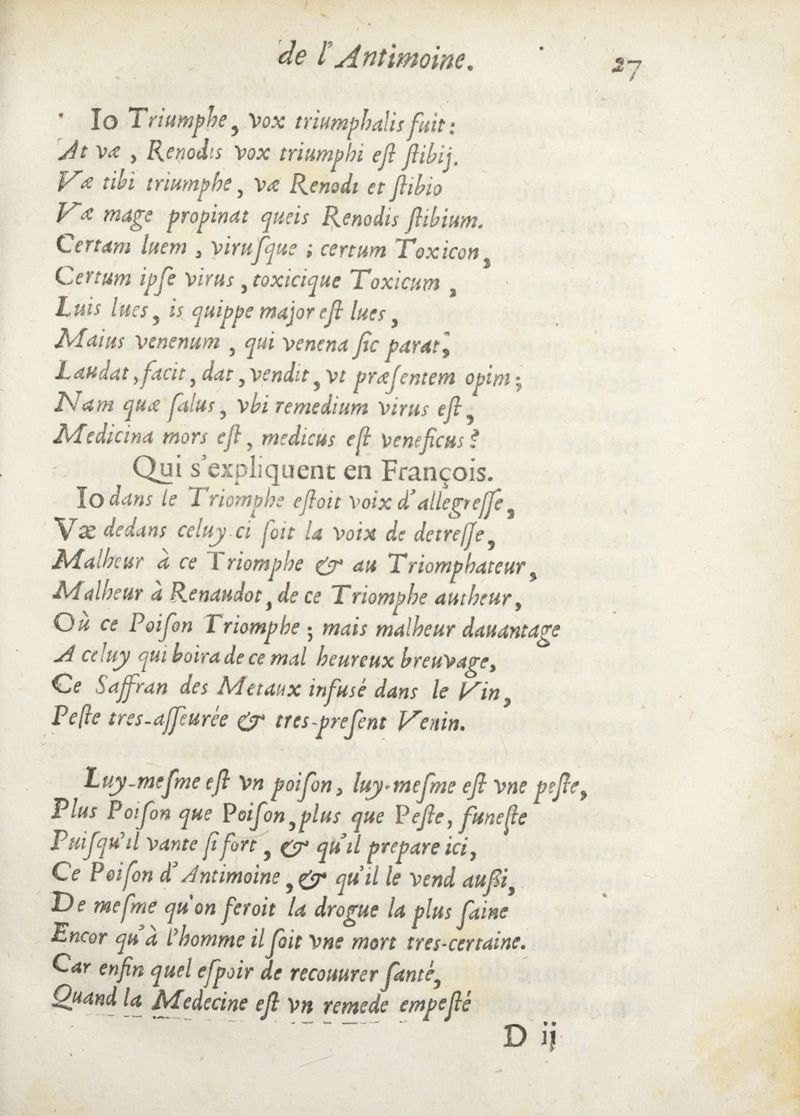 de l'Antimoine. 27
Io Triumphe, vox triumphalis fuit:
At væ, Renodis vox triumphi eſt ſtibij.
Væ tibi triumphe, væ Renodi et ſtibio
Væ mage propinat queis Renodis ſtibium.
Certam luem, viruſque; certum Toxicon,
Certum ipſe virus, toxicique Toxicum,
Luis lues, is quippe major eſt lues,
Maius venenum, qui venena ſic parat,
Laudat, facit, dat, vendit, vt præſentem opim;
Nam quæ ſalus, vbi remedium virus eſt,
Medicina mors eſt, medicus eſt veneficus?
Qui s'expliquent en François.
Io dans le Triomphe eſtoit voix d'allegreſſe,
Væ dedans celuy-ci ſoit la voix de detreſſe,
Malheur à ce Triomphe & au Triomphateur,
Malheur à Renaudot, de ce Triomphe autheur,
Où ce Poiſon Triomphe; mais malheur dauantage
A celuy qui boira de ce mal heureux breuvage,
Ce Saffran des Metaux infusé dans le Vin,
Peſte tres-aſſeurée & tres-preſent Venin.
Luy-meſme eſt vn poiſon, luy-meſme eſt vne peſte,
Plus Poiſon que Poiſon, plus que Peſte, funeſte
Puiſqu'il vante ſi fort, & qu'il prepare ici,
Ce Poiſon d'Antimoine, & qu'il le vend außi,
De meſme qu'on feroit la drogue la plus ſaine
Encor qu'à l'homme il ſoit vne mort tres-certaine.
Car enfin quel eſpoir de recouurer ſanté,
Quand la Medecine eſt vn remede empeſté
D ij